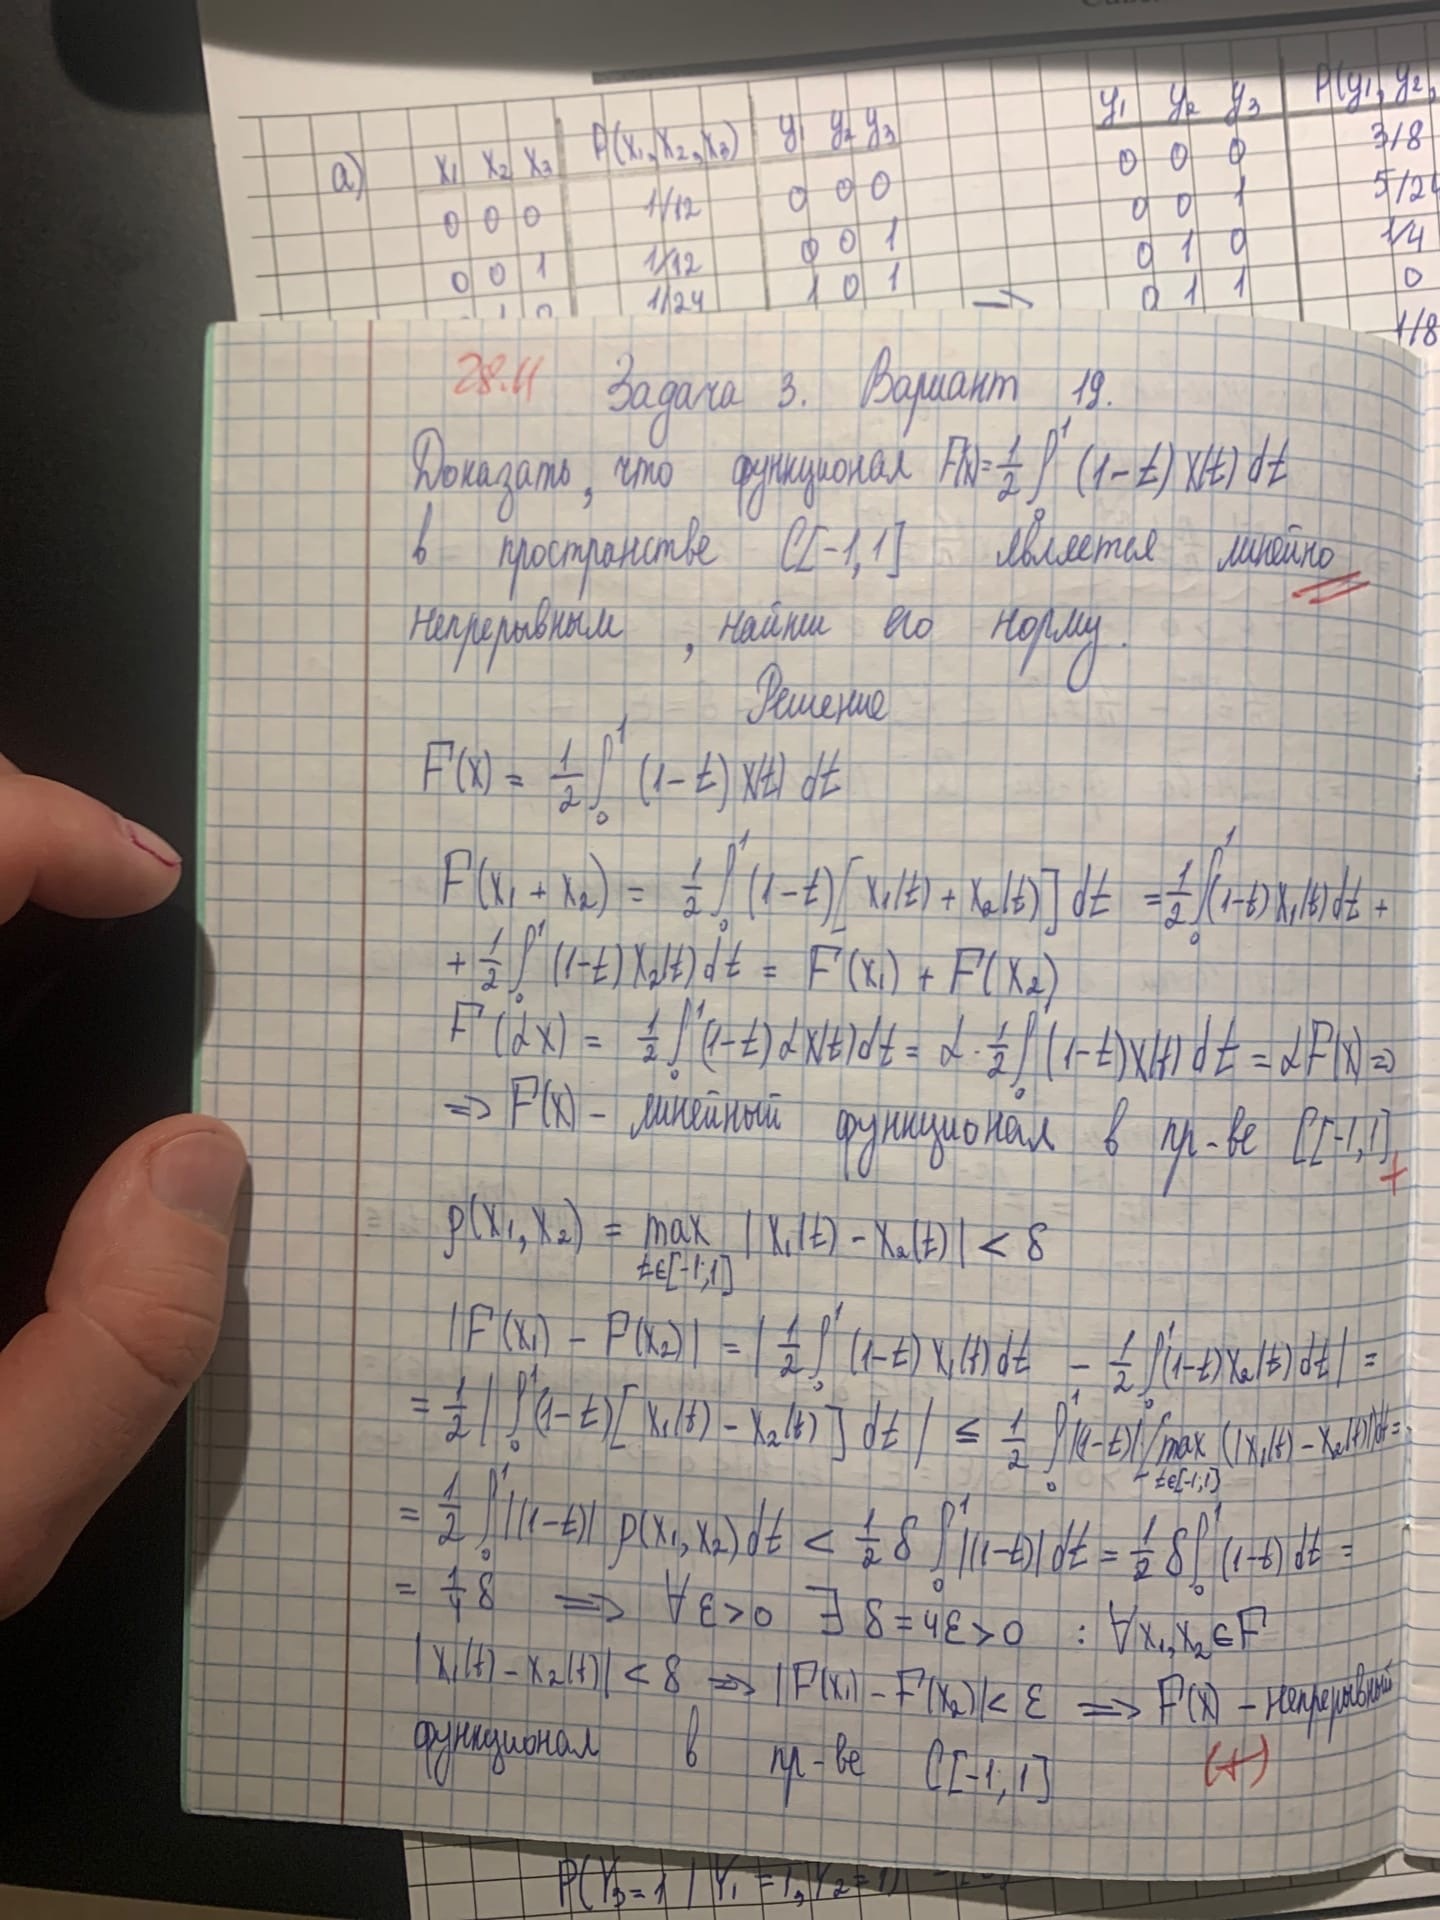 a) x₁ x₂ x₃ P(x₁, x₂, x₃) y₁ y₂ y₃ y₁ y₂ y₃ P(y₁, y₂,
0 0 0 1/12 0 0 0 0 0 0 3/8
0 0 1 1/12 0 0 1 0 0 1 5/24
1/24 1 0 1 ⇒ 0 1 0 1/4
0 1 1 0
1/8
28.11 Задача 3. Вариант 19.
Доказать, что функционал F(x)=1/2 ∫₀¹ (1-t) x(t) dt
в пространстве C[-1,1] является линейно
непрерывным, найти его норму.
Решение
F(x) = 1/2 ∫₀¹ (1-t) x(t) dt
F(x₁ + x₂) = 1/2 ∫₀¹ (1-t)[x₁(t) + x₂(t)] dt = 1/2 ∫₀¹ (1-t) x₁(t) dt +
+ 1/2 ∫₀¹ (1-t) x₂(t) dt = F(x₁) + F(x₂)
F(αx) = 1/2 ∫₀¹ (1-t) αx(t) dt = α · 1/2 ∫₀¹ (1-t) x(t) dt = αF(x) ⇒
⇒ F(x) - линейный функционал в пр-ве C[-1,1] +
ρ(x₁, x₂) = max t∈[-1;1] |x₁(t) - x₂(t)| < δ
|F(x₁) - F(x₂)| = |1/2 ∫₀¹ (1-t) x₁(t) dt - 1/2 ∫₀¹ (1-t) x₂(t) dt| =
= 1/2 |∫₀¹ (1-t)[x₁(t) - x₂(t)] dt| ≤ 1/2 ∫₀¹ |(1-t)| max t∈[-1;1] (|x₁(t) - x₂(t)|) dt =
= 1/2 ∫₀¹ |(1-t)| ρ(x₁, x₂) dt < 1/2 δ ∫₀¹ |(1-t)| dt = 1/2 δ ∫₀¹ (1-t) dt =
= 1/4 δ ⇒ ∀ε>0 ∃ δ = 4ε>0 : ∀x₁, x₂ ∈ F
|x₁(t) - x₂(t)| < δ ⇒ |F(x₁) - F(x₂)| < ε ⇒ F(x) - непрерывный
функционал в пр-ве C[-1;1] (+)
P(Y₃=1 | Y₁=1, Y₂=1) =